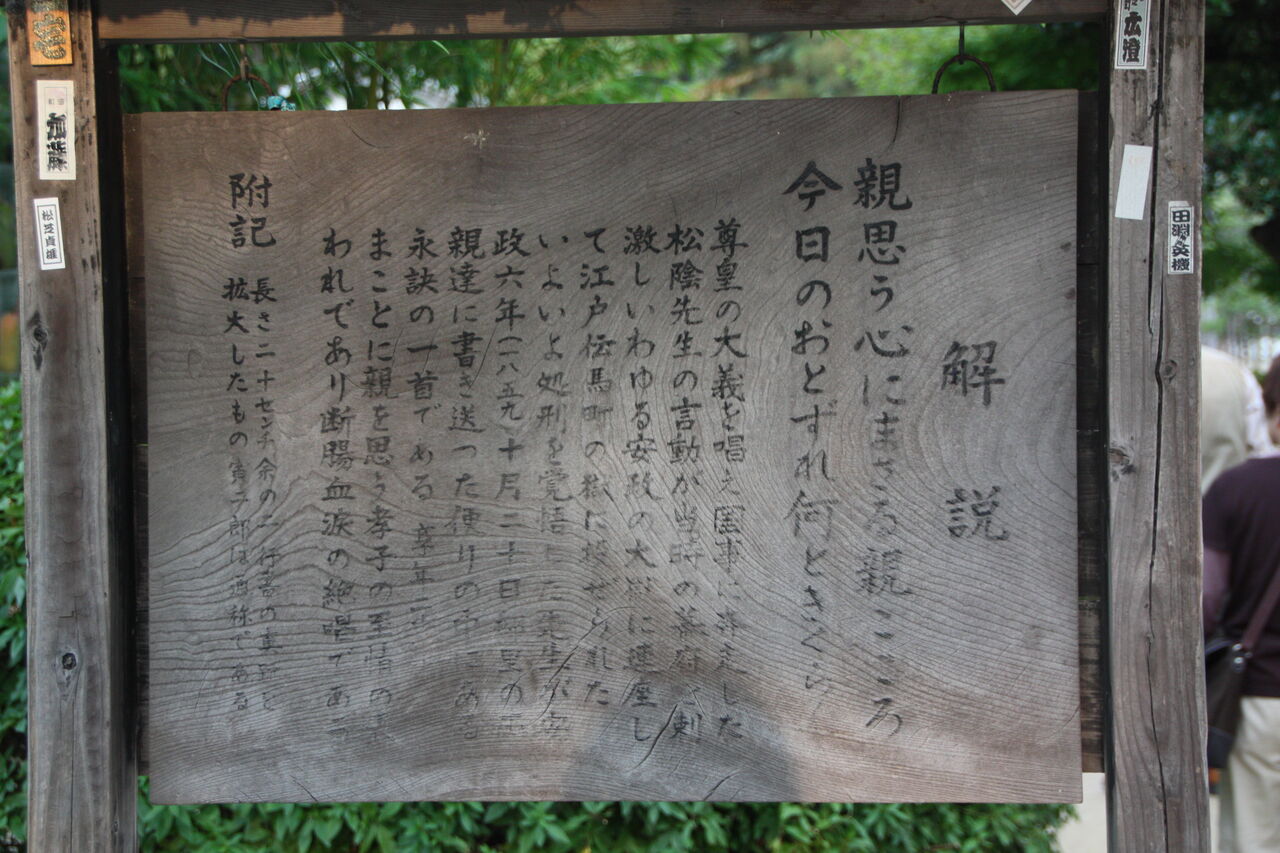 解説
親思う心にまさる親こころ
今日のおとずれ何ときくら
尊皇の大義を唱え国事に奔走した
松陰先生の言動が当時の幕府を刺
激しいわゆる安政の大獄に連座し
て江戸伝馬町の獄に投ぜられた
いよいよ処刑を覚悟した先生が安
政六年(一八五九)十月二十日
親達に書き送った便りの中にある
永訣の一首である 享年
まことに親を思う孝子の至情の
われであり断腸血涙の絶唱である
附記
長さ二十センチ余の二行書の真跡を
拡大したもの寅次郎は通称である
加藤
松芝貞雄
広澄